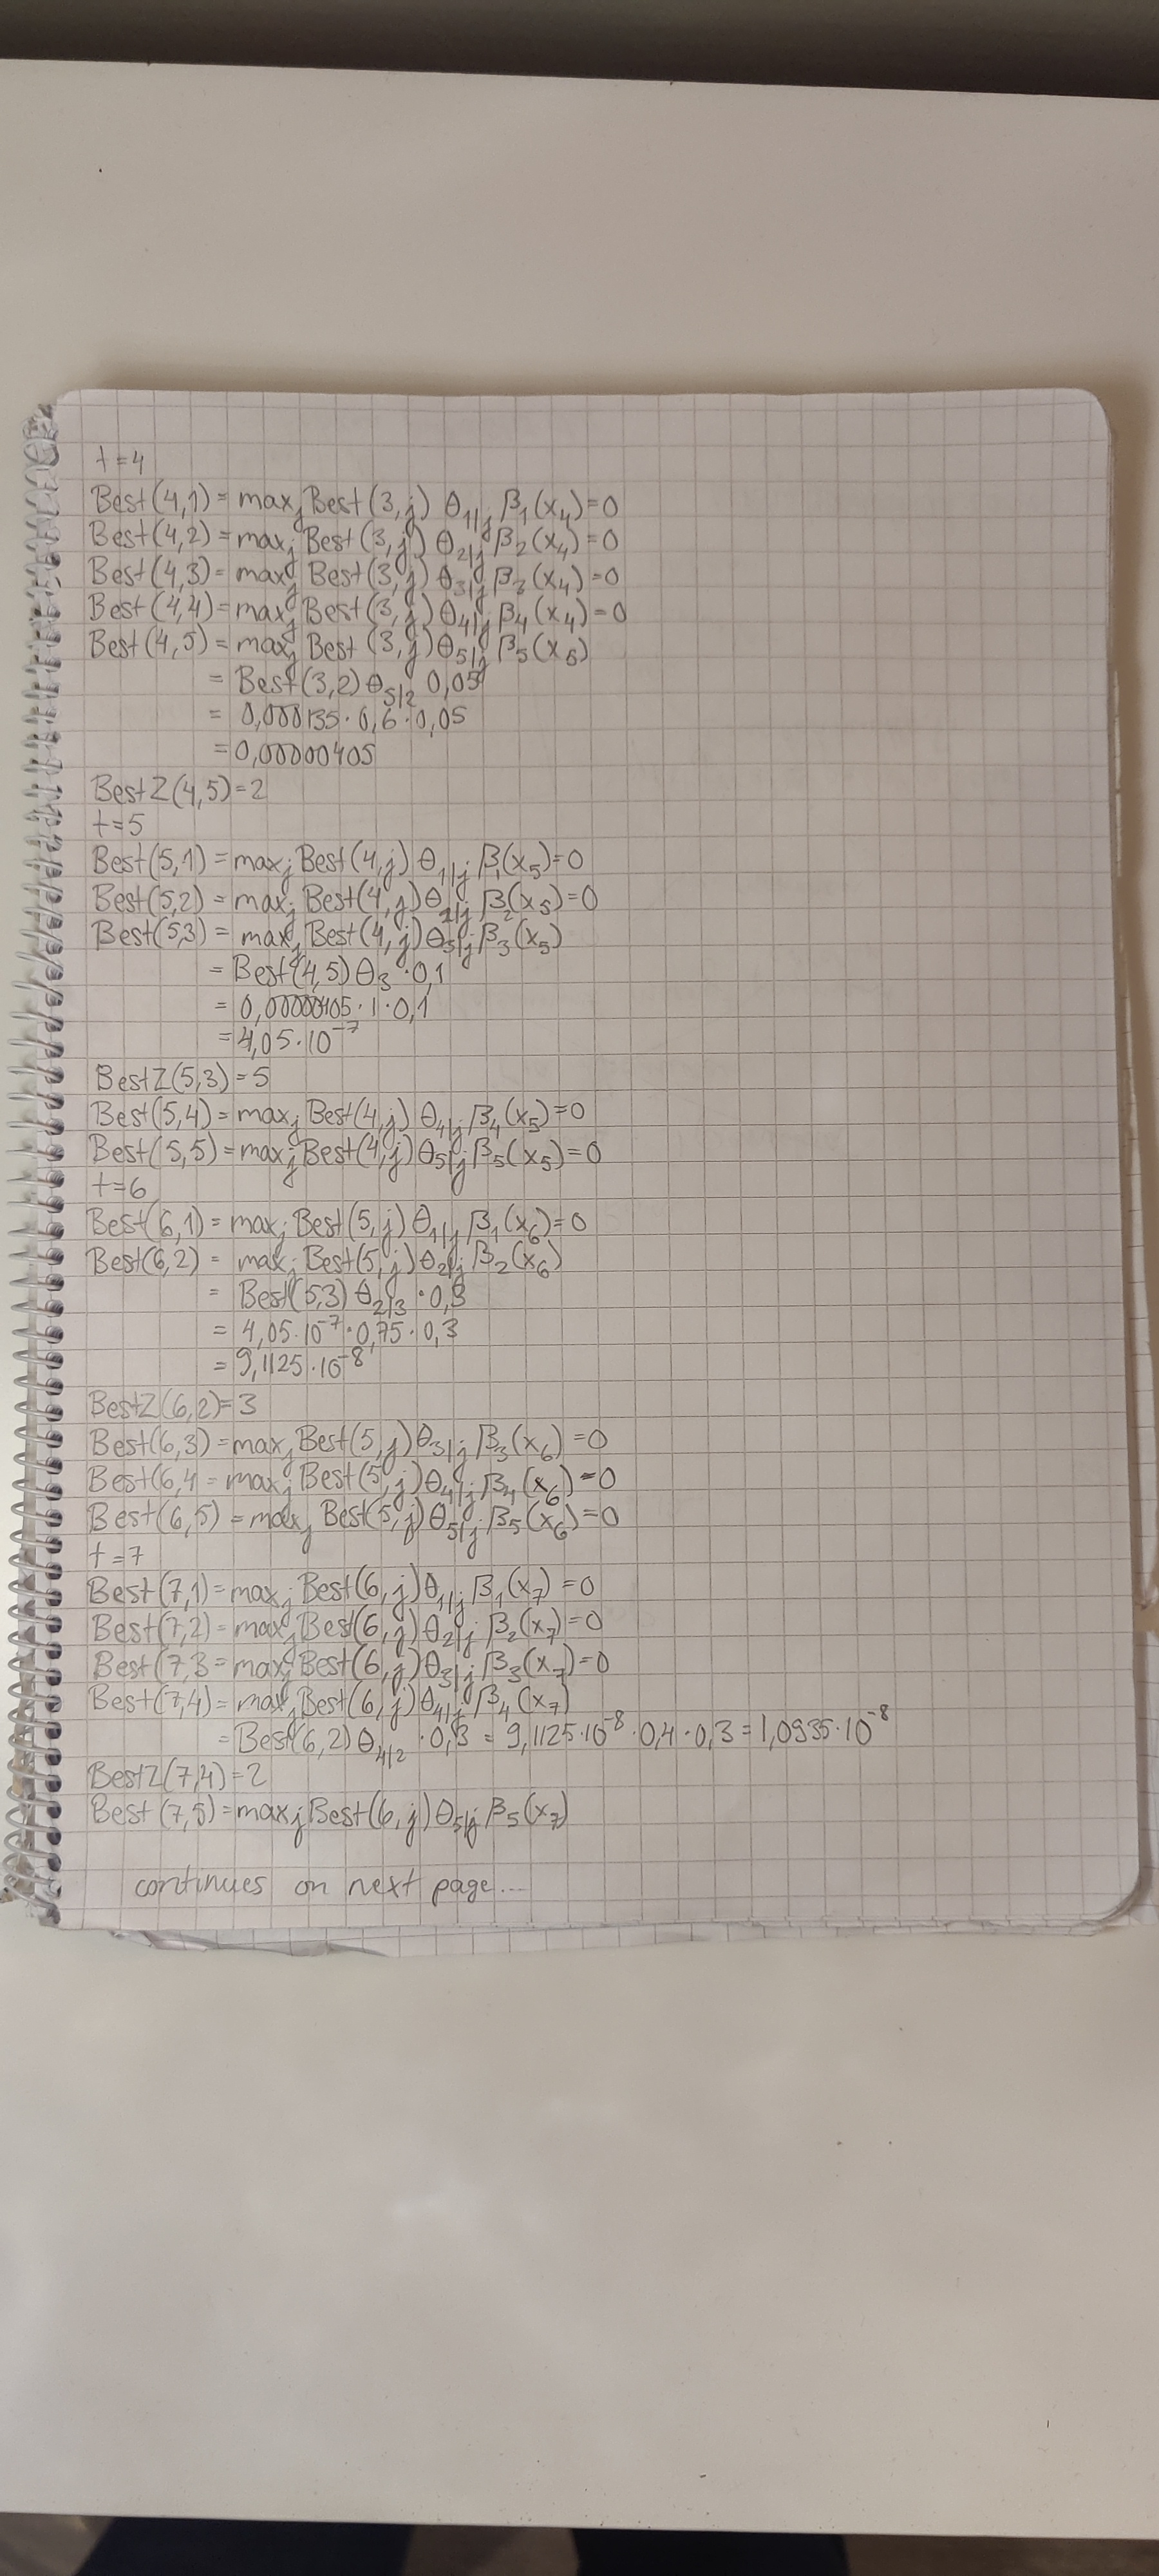 t=4
Best(4,1) = max_j Best(3,j) θ_1|j β_1(x_4)=0
Best(4,2) = max_j Best(3,j) θ_2|j β_2(x_4)=0
Best(4,3) = max_j Best(3,j) θ_3|j β_3(x_4)=0
Best(4,4) = max_j Best(3,j) θ_4|j β_4(x_4)=0
Best(4,5) = max_j Best(3,j) θ_5|j β_5(x_5)
= Best(3,2) θ_5|2 0,05
= 0,000135·0,6·0,05
= 0,00000405
BestZ(4,5)=2
t=5
Best(5,1) = max_j Best(4,j) θ_1|j β_1(x_5)=0
Best(5,2) = max_j Best(4,j) θ_2|j β_2(x_5)=0
Best(5,3) = max_j Best(4,j) θ_3|j β_3(x_5)
= Best(4,5) θ_3 ·0,1
= 0,00000405·1·0,1
= 4,05·10^-7
BestZ(5,3)=5
Best(5,4) = max_j Best(4,j) θ_4|j β_4(x_5)=0
Best(5,5) = max_j Best(4,j) θ_5|j β_5(x_5)=0
t=6
Best(6,1) = max_j Best(5,j) θ_1|j β_1(x_6)=0
Best(6,2) = max_j Best(5,j) θ_2|j β_2(x_6)
= Best(5,3) θ_2|3 ·0,3
= 4,05·10^-7·0,75·0,3
= 9,1125·10^-8
BestZ(6,2)=3
Best(6,3) = max_j Best(5,j) θ_3|j β_3(x_6)=0
Best(6,4 = max_j Best(5,j) θ_4|j β_4(x_6)=0
Best(6,5) = max_j Best(5,j) θ_5|j β_5(x_6)=0
t=7
Best(7,1) = max_j Best(6,j) θ_1|j β_1(x_7)=0
Best(7,2) = max_j Best(6,j) θ_2|j β_2(x_7)=0
Best(7,3 = max_j Best(6,j) θ_3|j β_3(x_7)=0
Best(7,4) = max_j Best(6,j) θ_4|j β_4(x_7)
= Best(6,2) θ_4|2 ·0,3 = 9,1125·10^-8·0,4·0,3=1,0935·10^-8
BestZ(7,4)=2
Best(7,5) = max_j Best(6,j) θ_5|j β_5(x_7)
continues on next page...